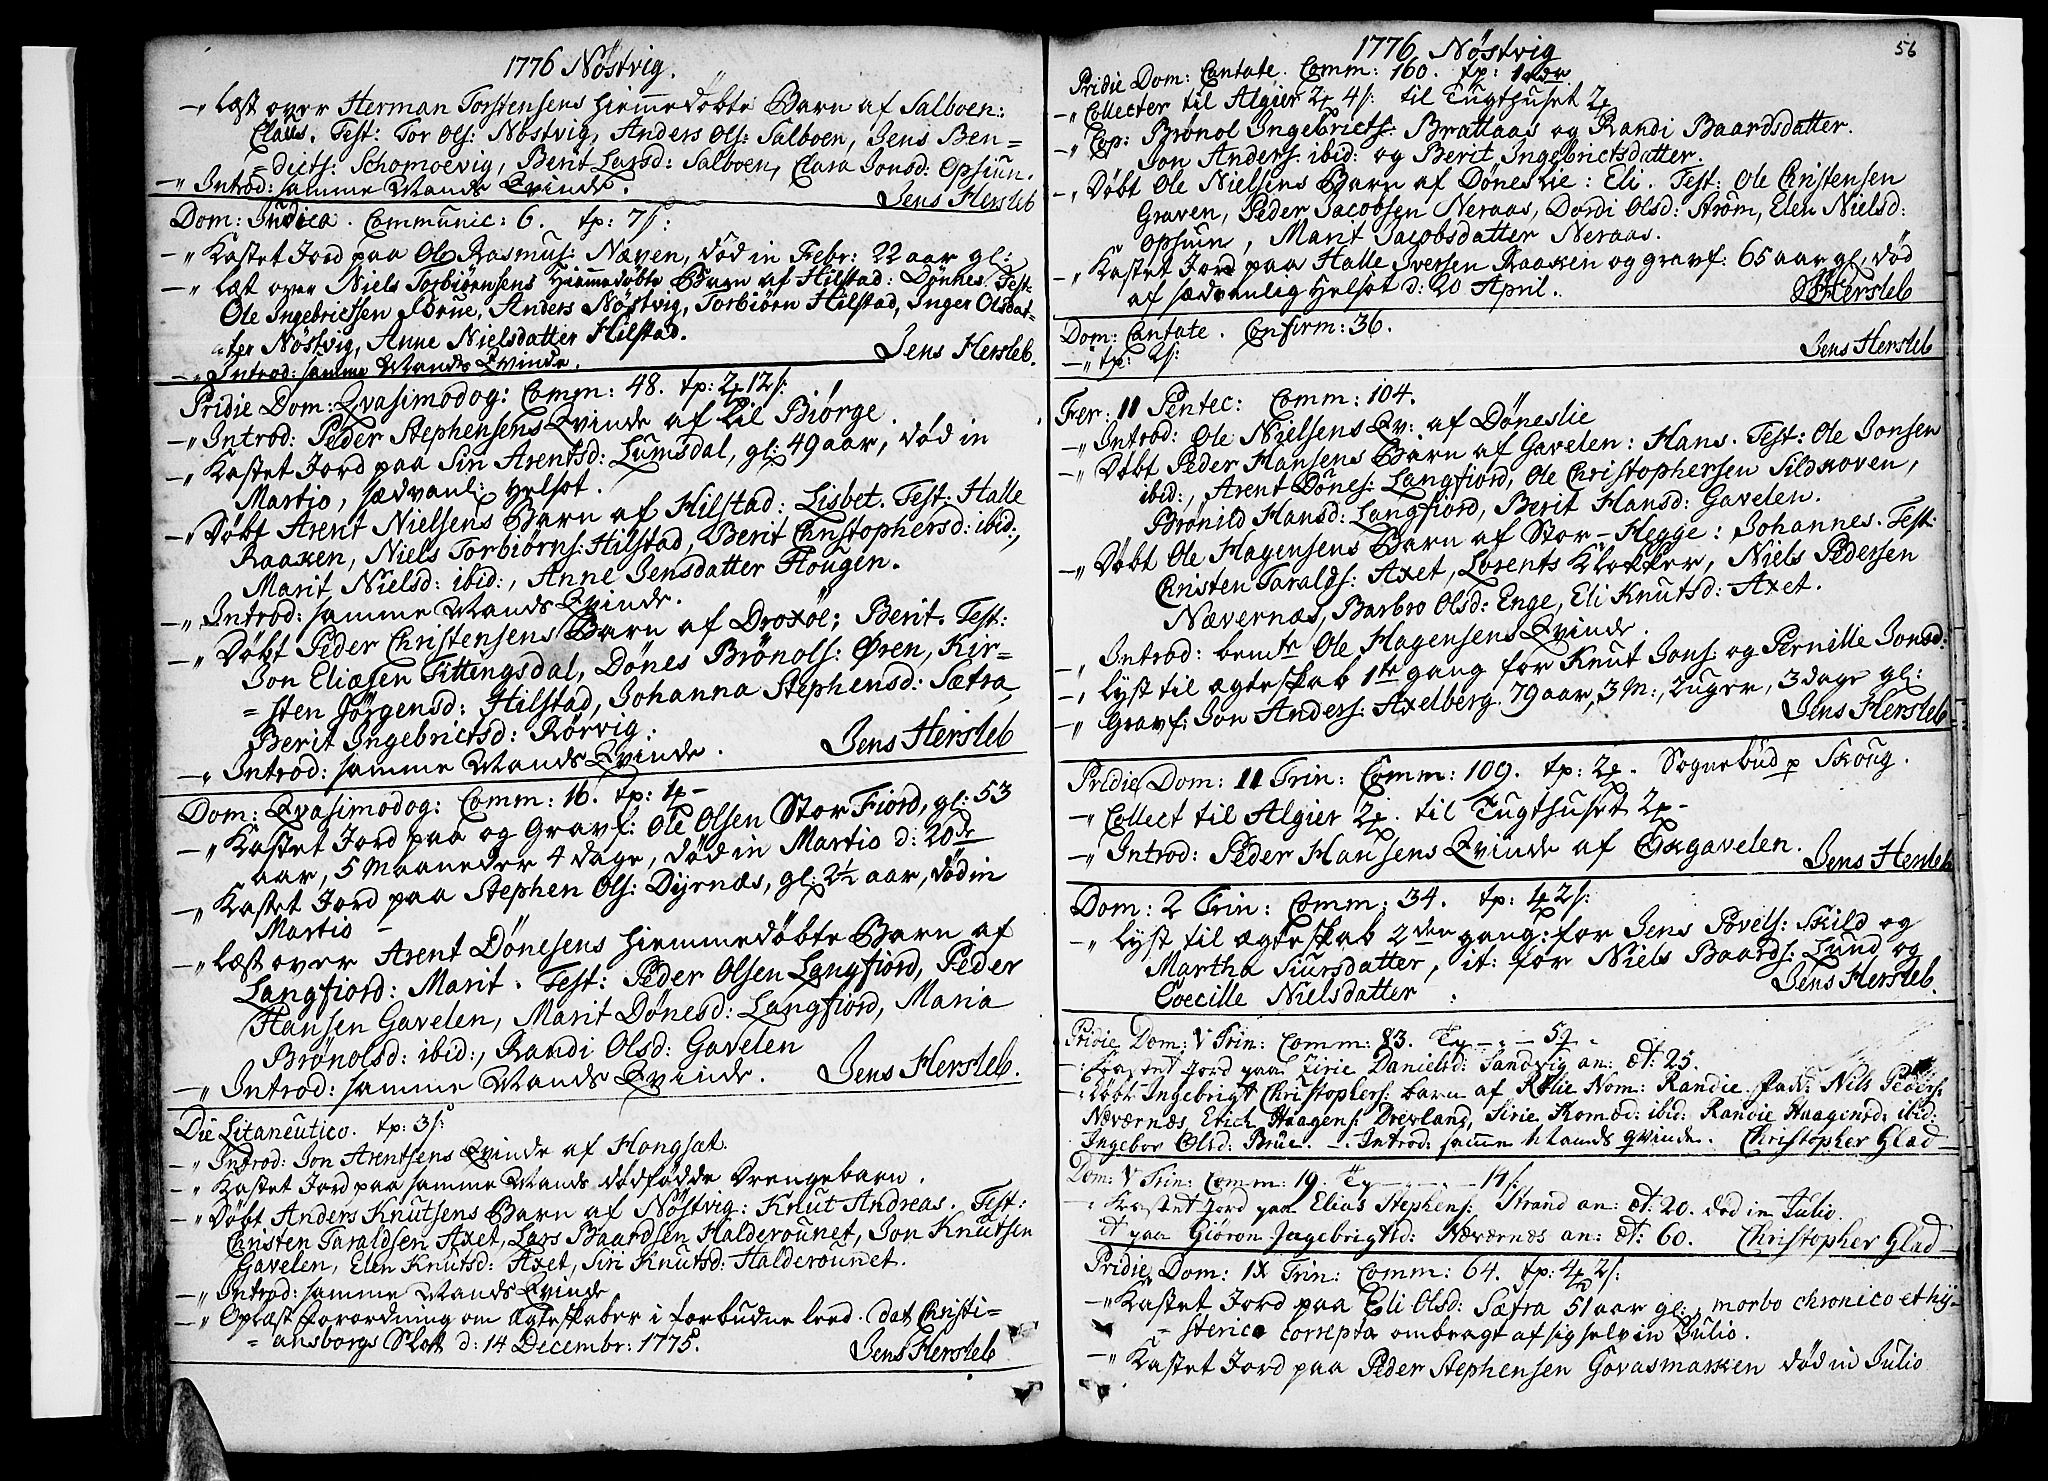 1776 Nöstvig.
–„ Læst over Herman Torstensens hiemmedøbte Barn af Salboen:
Claus. Test: Tor Ols: Nöstvig, Anders Ols: Salboen, Jens Ben=
=dicts: Schomoevig, Berit Larsd: Salboen, Clara Jonsd: Opsiun.
–„ Introd: samme Mands Qvinde. Jens Hersleb
Dom: Judica. Communic: 6. tp: 7ß:
–„ Kastet Jord paa Ole Rasmus: Næven, død in Febr: 22 aar gl:
–„ Læst over Niels Torbiörnsens Hiemmedøbte Barn af Hilstad: Dønnes. Test:
Ole Ingebrictsen Brue, Anders Nöstvig, Torbiörn Hilstad, Inger Olsdat=
=ter Nöstvig, Anne Nielsdatter Hilstad.
–„ Introd: samme Mands Qvinde. Jens Hersleb.
Pridie Dom: Qvasimodog: Comm: 48. tp: 2 12ß:
–„ Introd: Peder Stephensens Qvinde af Lil Biörge.
–„ Kastet Jord paa Siri Arentsd: Lumsdal, gl: 49 aar, død in
Martio, sædvanl: Helsot.
–„ Døbt Arent Nielsens Barn af Hilstad: Lisbet. Test: Halle
Raaken, Niels Torbiörns: Hilstad, Berit Christophersd: ibid:,
Marit Nielsd: ibid:, Anne Jensdatter Hougen.
–„ Introd: samme Mands Qvinde.
–„ Døbt Peder Christensens Barn af Droxöl; Berit. Test:
Jon Eliæsen Fittengsdal, Dønes Brönols: Øren, Kir=
=sten Jörgensd: Hilstad, Johanna Stephensd: Sætra,
Berit Ingebrictsd: Rörvig:
–„ Introd: samme Mands Qvinde. Jens Hersleb
Dom: Qvasimodog: Comm: 16. tp: 1 –
–„ Kastet Jord paa og Gravf: Ole Olsen StorFiord, gl: 53
aar, 5 Maaneder 4 dage, død in Martio d: 20de
–„ Kastet Jord paa Stephen Ols: Dyrnæs, gl: 2½ aar, død in
Martio –
–„ Læst over Arent Dönesens hiemmedøbte Barn af
Langfiord: Marit. Test: Peder Olsen Langfiord, Peder
Hansen Gavelen, Marit Dönesd: Langfiord, Maria
Brönolsd: ibid:, Randi Olsd: Gavelen
–„ Introd: samme Mands Qvinde. Jens Hersleb.
Die Litaneutico. tp: 3ß
–„ Introd: Jon Arentsens Qvinde af Hongsæt.
–„ Kastet Jord paa samme Mands dødfødde Drengebarn.
–„ Døbt Anders Knutsens Barn af Nöstvig: Knut Andreas. Test:
Christen Taraldsen Axet, Lars Baardsen Halderounet, Jon Knutsen
Gavelen, Elen Knutsd: Axet, Siri Knutsd: Halderounet.
–„ Introd: samme Mands Qvinde
–„ Oplæst Forordning om Ægteskaber i forbudne leed. dat Christi=
=ansborgs Slott d: 14 Decembr: 1775. Jens Hersleb
1776 Nöstvig
56
Pridie Dom: Cantate. Comm: 160. tp:
–„ Collecter til Algier 2 4ß: til Tugthuset 2
–„ Cop: Brönol Ingebricts: Bratlaas og Randi Baardsdatter.
Jon Anders: ibid: og Berit Ingebrictsdatter.
–„ Døbt Ole Nielsens Barn af Döneslie: Eli. Test: Ole Christensen
Graven, Peder Jacobsen Neraas, Dordi Olsd: Ström, Elen Nielsd:
Opsiun, Marit Jacobsdatter Neraas.
–„ Kastet Jord paa Halle Iversen Raaken og gravf: 65 aar gl, død
af sædvanlig Helsot d: 20 April. JHersleb
Dom: Cantate. Confirm: 36.
–„ tp: 2ß: Jens Hersleb
Fer: II Pentec: Comm: 104.
–„ Introd: Ole Nielsens Qv: af Döneslie
–„ Døbt Peder Hansens Barn af Gavelen: Hans. Test: Ole Jonsen
ibid:, Arent Dönes: Langfiord, Ole Christophersen Sildkoven,
Brönild Hansd: Langfiord, Berit Hansd: Gavelen.
–„ Døbt Ole Hagensens Barn af Stor-Hegge: Johannes. Test:
Christen Taralds: Axet, Lorents Klokker, Niels Pedersen
Nævernæs, Barbro Olsd: Enge, Eli Knutsd: Axet.
–„ Introd: bemte Ole Hagensens Qvinde.
–„ Lyst til ægteskab 1te gang for Knut Jons: og Pernille Jonsd:
–„ Gravf: Jon Anders: Axelberg. 79 aar, 3 M:, 2 uger, 3 dage gl:
Jens Hersleb
Pridie Dom: II Trin: Comm: 109. tp: 2. Sognebud p Skoug.
–„ Collect til Algier 2. til Tugthuset 2 –
–„ Introd: Peder Hansens Qvinde af Exgavelen. Jens Hersleb
Dom: 2 Trin: Comm: 34. tp: 4 2ß:
–„ Lyst til ægteskab 2den gang: for Jens Povels: Skild og
Martha Siursdatter, it: for Niels Baards: Lund og
Coecille Nielsdatter. Jens Hersleb.
Pridie Dom: V Trin: Comm: 83. Tp – „ – 5
– Kastet jord paa Sirie Danielsd: Sandvig an: æt: 25.
– Døbt Ingebrigt Christophers: barn af Rølie Nom: Randie. fadd: Nils Peders:
Næværnæs, Erich Haagens: Drevland, Sirie ibid: Randie Haagensd: ibid:
Ingebor Olsd: Brue. – Introd: samme Mands qvinde. Christopher Glad –
Dom: V Trin: Comm: 19. Tp – „ – „ – 14ß.
– Kastet jord paa Elias Stephens: Strand an: æt: 20. død in Julio.
it paa Giöron Ingebrigtsd: Næværnæs an: æt: 60. Christopher Glad –
Pridie Dom: IX Trin: Comm: 64. tp: 4 2ß:
–„ Kastet Jord paa Eli Olsd: Sætra 51 aar gl:, morbo chronico et hy=
=sterico correpta ombragt af sig selv in Julio.
–„ Kastet Jord paa Peder Stephensen Govasmarken død in Julio